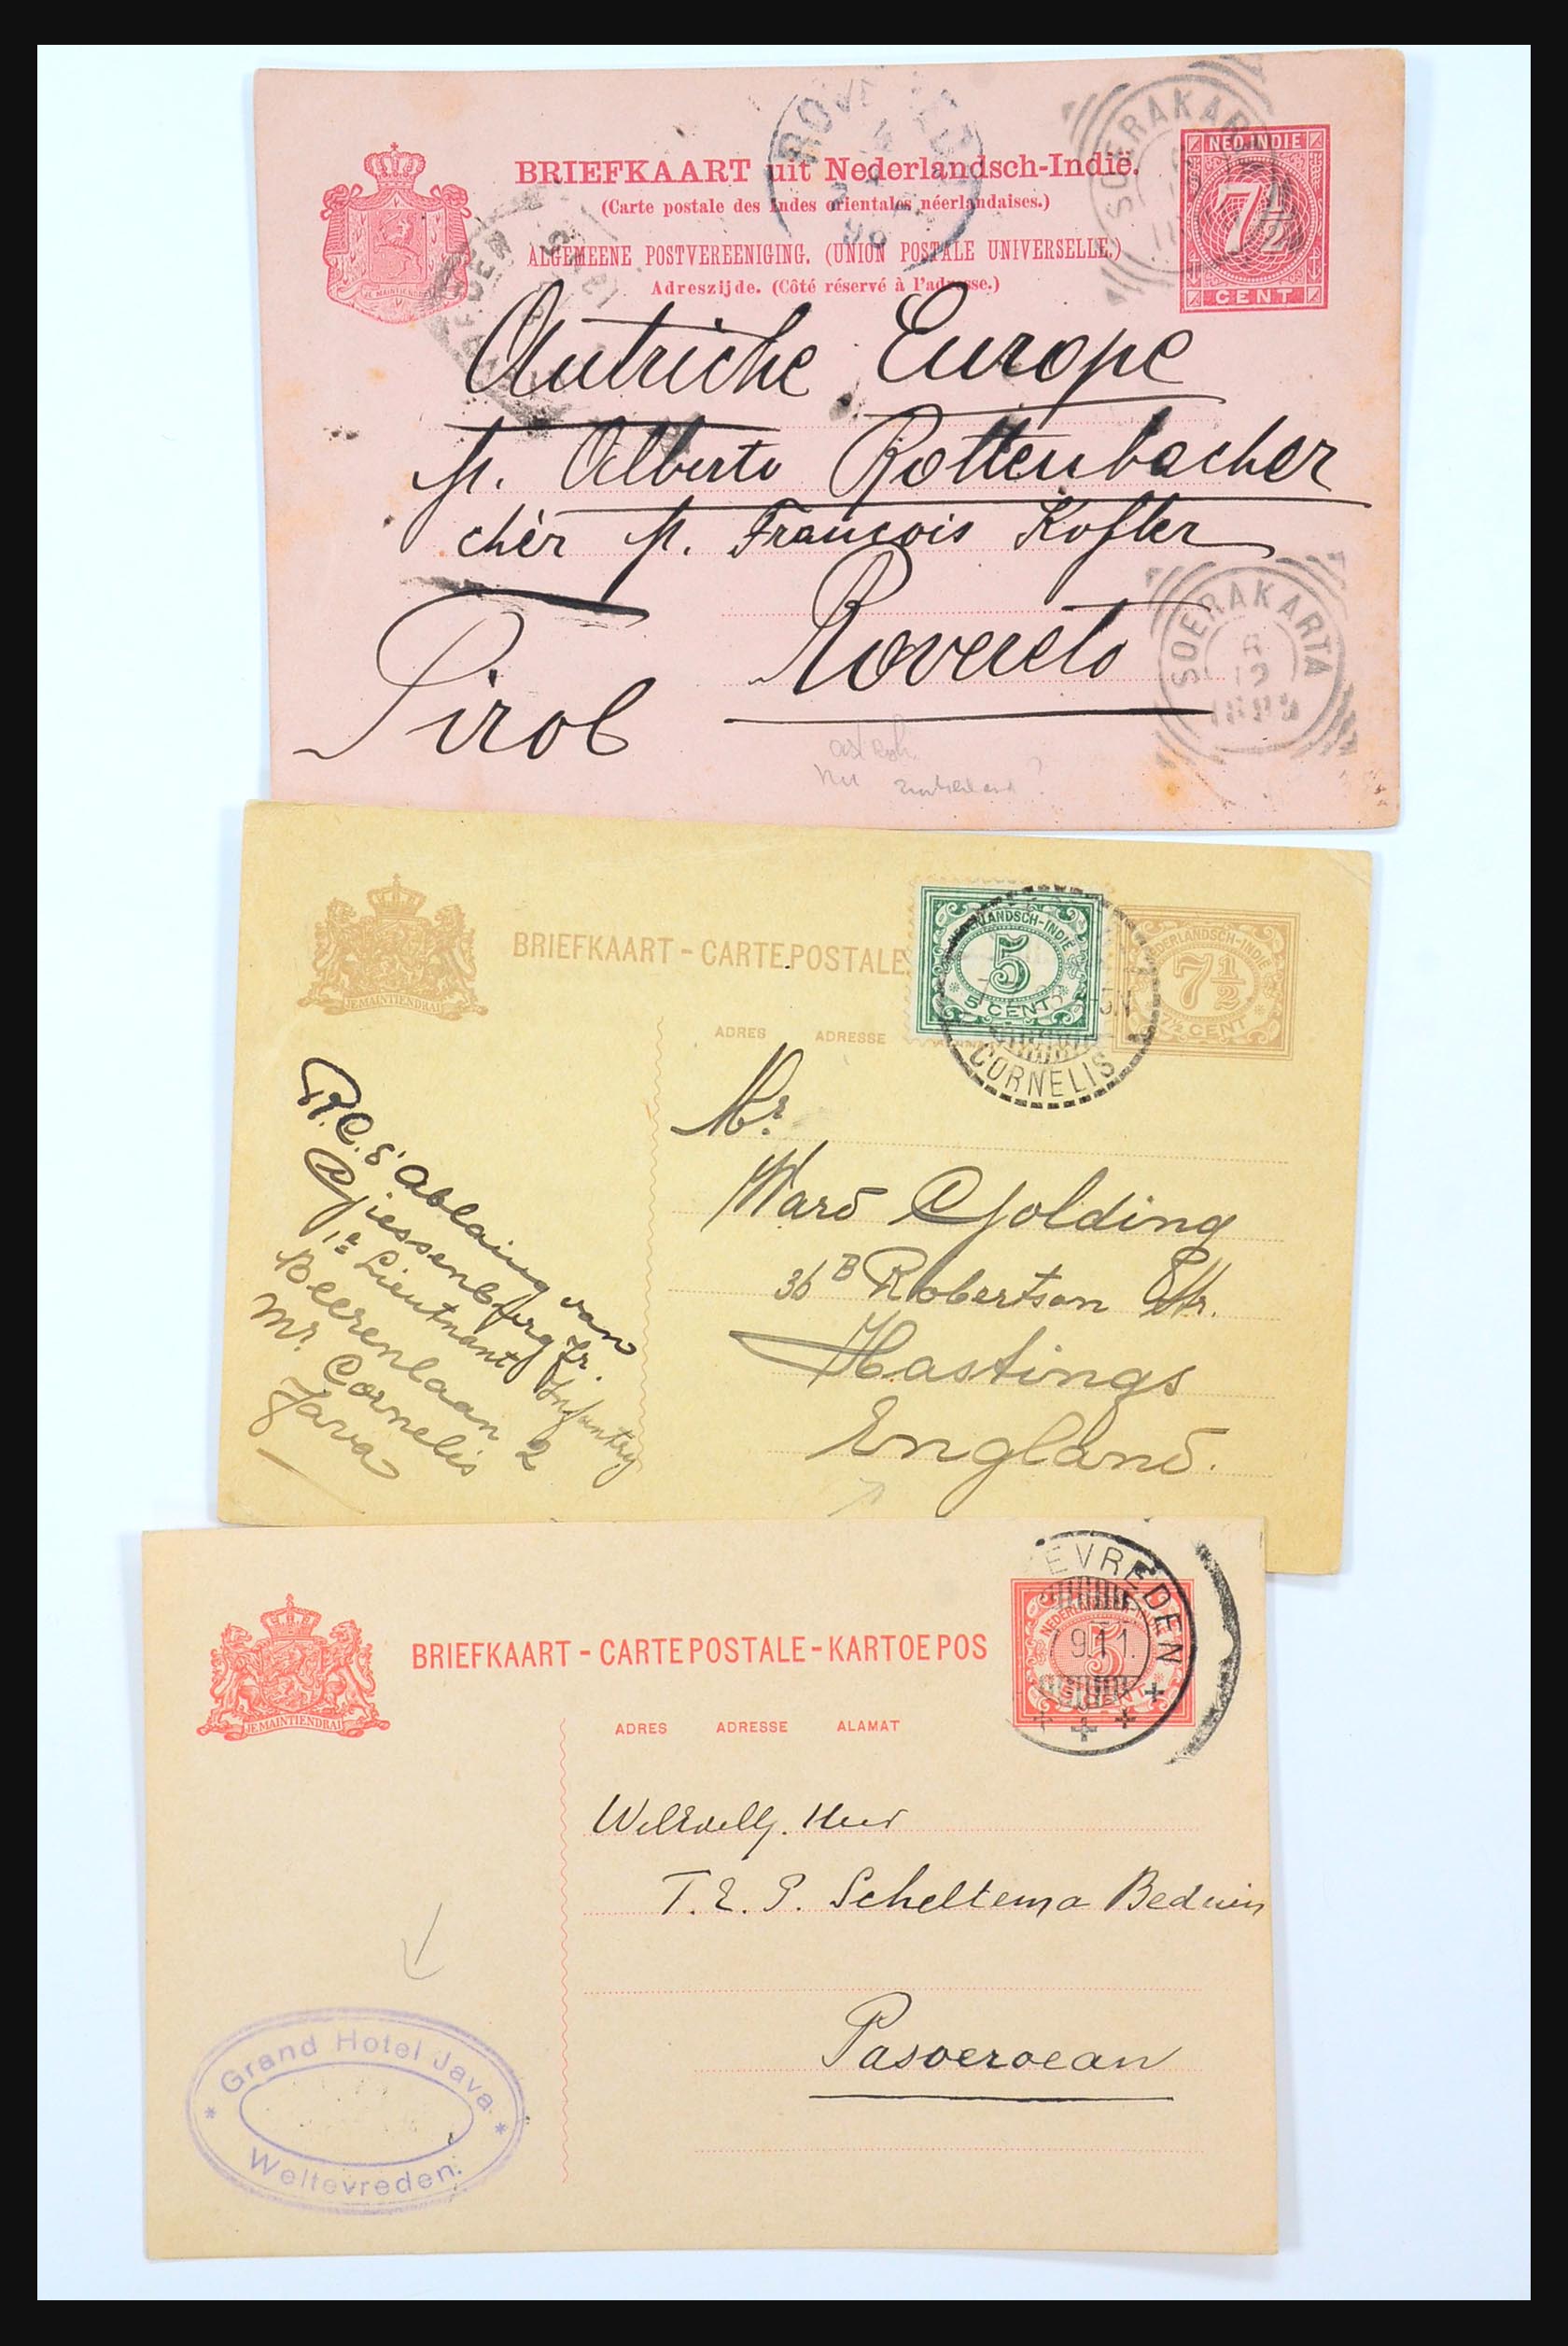 BRIEFKAART uit Nederlandsch-Indië.
(Carte postale des Indes orientales néerlandaises.)
ALGEMEENE POSTVEREENIGING. (UNION POSTALE UNIVERSELLE.)
Adreszijde. (Côté réservé à l'adresse.)
JE MAINTIENDRAI
SOERAKARTA
NED. INDIE
7½
CENT
Autriche Europe
M. Alberto Rottenbacher
chèr M. François Kofler
Rovereto
Tirol
SOERAKARTA
12
BRIEFKAART - CARTE POSTALE
JE MAINTIENDRAI
NEDERLANDSCH-INDIE
5
5 CENT
NEDERLANDSCH-INDIE
7½
7½ CENT
CORNELIS
ADRES ADRESSE
Mr.
Ward Golding
36 B Robertson Str.
Hastings
England.
R.C. d'Ablaing van
Giessenburg Jr.
1e Lieutnant Infantry
Beerenlaan 2
Mr. Cornelis
Java
BRIEFKAART - CARTE POSTALE - KARTOE POS
JE MAINTIENDRAI
EVREDEN
5
CENT
ADRES ADRESSE ALAMAT
T. E. P. Scheltema Beduin
Pasoeroean
Grand Hotel Java
Weltevreden.